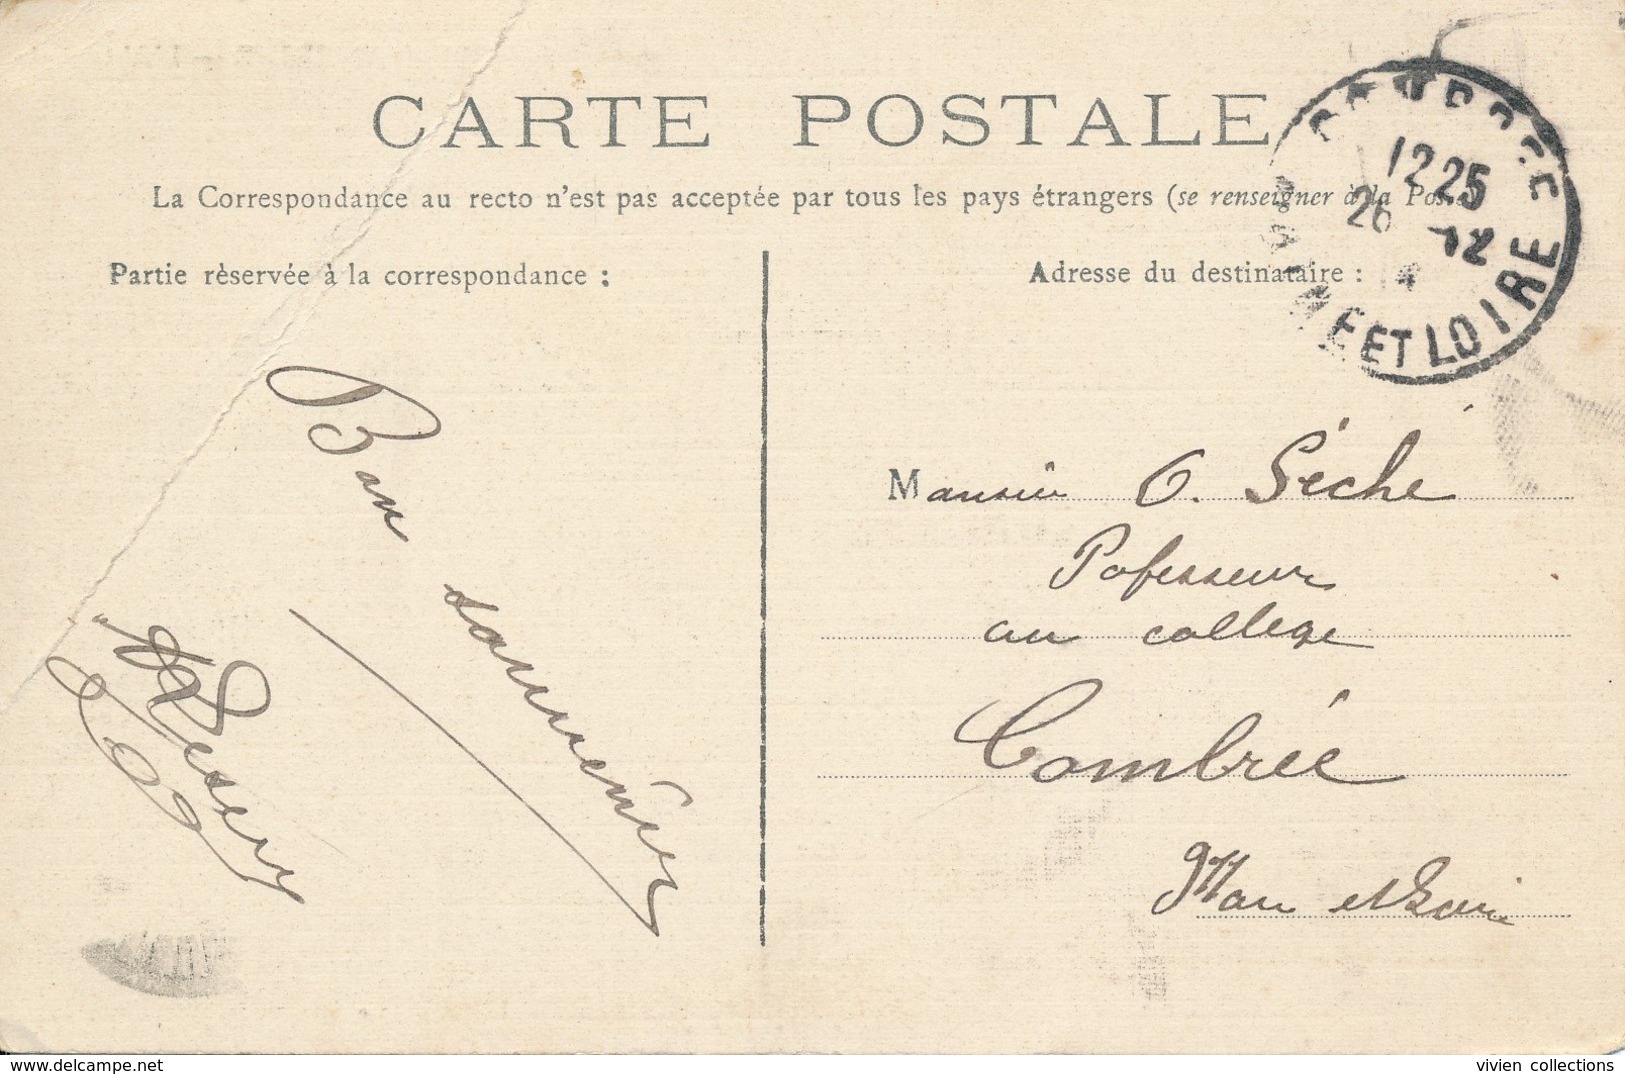 CARTE POSTALE
La Correspondance au recto n'est pas acceptée par tous les pays étrangers (se renseigner à la Poste)
Partie rèservée à la correspondance :
Adresse du destinataire :
12 25
26 -12
MAINE ET LOIRE
Bon
souvenir
Monsieur O. Séché
Pofesseur
au collège
Combrée
Maine et Loire
vivien collections